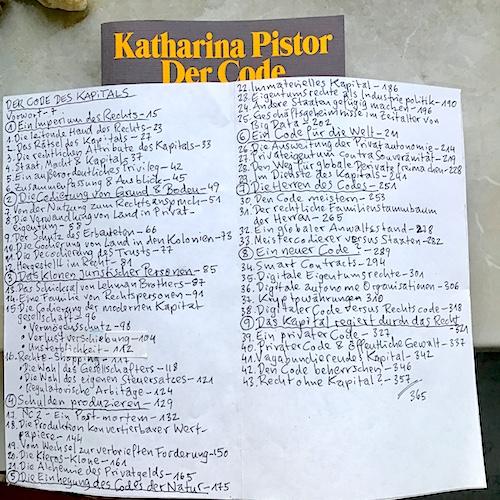 Katharina Pistor
Der Code
DER CODE DES KAPITALS
Vorwort - 7
① Ein Imperium des Rechts - 15
1. Die leitende Hand des Rechts - 23
2. Das Rätsel des Kapitals - 27
3. Die rechtlichen Attribute des Kapitals - 33
4. Staat, Macht & Kapital 37
5. Ein außerordentliches Privileg - 42
6. Zusammenfassung & Ausblick - 45
② Die Codierung von Grund & Boden - 49
7. Von der Nutzung zum Rechtsanspruch - 51
8. Die Verwandlung von Land in Privat-
eigentum - 58
9. Der Schutz des Erbeuteten - 66
10. Die Codierung von Land in den Kolonien - 73
11. Die Decodierung des Trusts - 77
12. Hergestellt im Recht - 81
③ Das Klonen juristischer Personen - 85
13. Das Schicksal von Lehman Brothers - 87
14. Eine Familie von Rechtspersonen - 91
15. Die Codierung der modernen Kapital
gesellschaft -
• Vermögensschutz - 98
• Verlustverschiebung - 104
• Unsterblichkeit - 112
16. Rechte-Shopping - 117
• Die Wahl des Gesellschafters - 118
• Die Wahl des eigenen Steuersatzes - 121
• Regulatorische Arbitrage - 124
④ Schulden produzieren - 129
17. NC2 - Ein Post-mortem - 132
18. Die Produktion konvertierbarer Wert-
papiere - 144
19. Vom Wechsel zur verbrieften Forderung - 150
20. Die Kleros-Klone - 161
21. Die Alchemie des Privatgelds - 165
⑤ Die Einhegung des Codes der Natur - 175
22. Immaterielles Kapital - 186
23. Eigentumsrechte als Industriepolitik - 190
24. Andere Staaten gefügig machen - 196
25. Geschäftsgeheimnisse im Zeitalter von
Big Data - 202
⑥ Ein Code für die Welt - 211
26. Die Ausweitung der Privatautonomie - 214
27. Privateigentum contra Souveränität - 219
28. Den Weg für globale Private freimachen - 228
29. Im Dienste des Kapitals - 241
⑦ Die Herren des Codes - 251
30. Den Code meistern - 253
31. Der rechtliche Familienstammbaum
der Herren - 265
32. Ein globaler Anwaltsstand - 278
33. Meistercodierer versus Staaten - 282
⑧ Ein neuer Code? - 289
34. Smart Contracts - 294
35. Digitale Eigentumsrechte - 301
36. Digitale autonome Organisationen - 306
37. Kryptowährungen 310
38. Digitaler Code versus Rechtscode - 318
⑨ Das Kapital regiert durch das Recht
321
39. Ein privater Code - 327
40. Privater Code & öffentliche Gewalt - 337
41. Vagabundierendes Kapital - 342
42. Den Code beherrschen - 346
43. Recht ohne Kapital? - 357
365